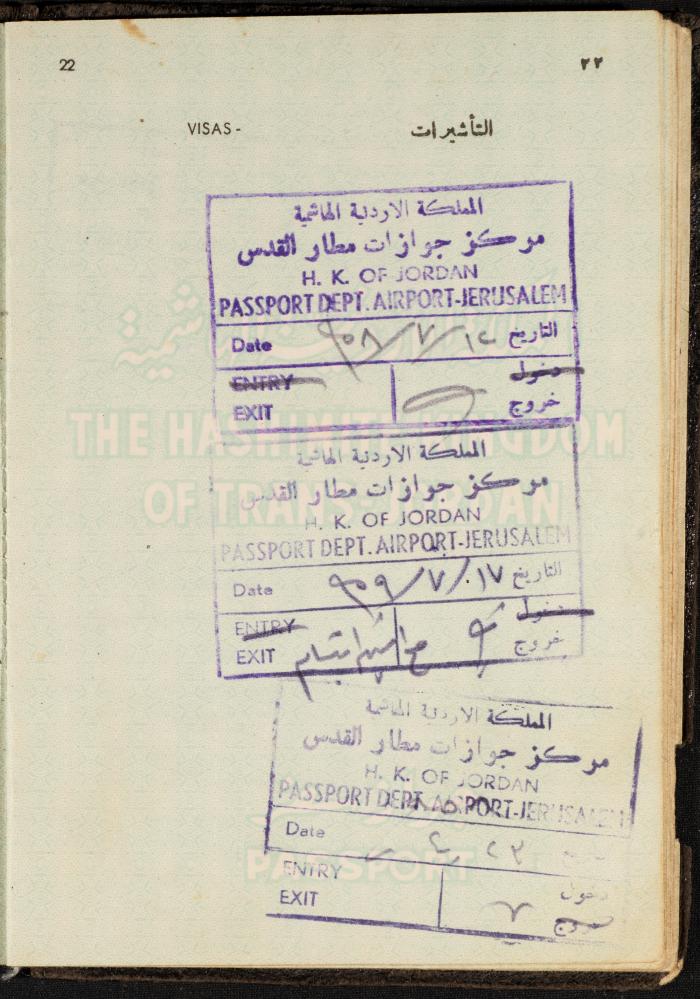 22 ٢٢
VISAS - التأشيرات
المملكة الاردنية الهاشمية
مركز جوازات مطار القدس
H. K. OF JORDAN
PASSPORT DEPT. AIRPORT-JERUSALEM
Date ٩٥٨/٧/١٤ التاريخ
ENTRY دخول
EXIT خروج
THE HASHIMITE KINGDOM
OF TRANS-JORDAN
المملكة الاردنية الهاشمية
مركز جوازات مطار القدس
H. K. OF JORDAN
PASSPORT DEPT. AIRPORT-JERUSALEM
Date ٩٥٩/٧/١٧ التاريخ
ENTRY دخول
EXIT خروج
المملكة الاردنية الهاشمية
مركز جوازات مطار القدس
H. K. OF JORDAN
PASSPORT DEPT. AIRPORT-JERUSALEM
Date
PASSPORT
ENTRY دخول
EXIT خروج